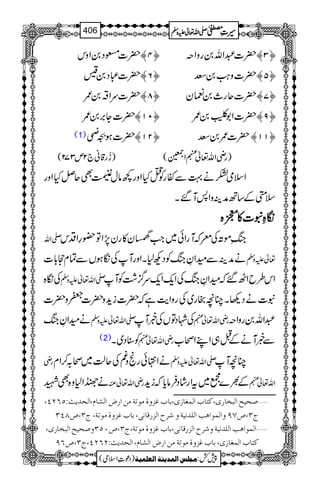 سیرتِ مصطفیٰ صلی اللہ تعالیٰ علیہ وسلم 406
﴿۳﴾ حضرت عبداللہ بن رواحہ ﴿۴﴾ حضرت مسعود بن اوس
﴿۵﴾ حضرت وہب بن سعد ﴿۶﴾ حضرت عباد بن قیس
﴿۷﴾ حضرت حارث بن نعمان ﴿۸﴾ حضرت سراقہ بن عمر
﴿۹﴾ حضرت ابوکلیب بن عمر ﴿۱۰﴾ حضرت جابر بن عمر
﴿۱۱﴾ حضرت عمر بن سعد ﴿۱۲﴾ حضرت ہوبجہ ضبی (1)
(رضی اللہ تعالیٰ عنہم اجمعین) (زُرقانی ج۲ ص۲۷۳)
اسلامی لشکر نے بہت سے کفار کو قتل کیا اور کچھ مالِ غنیمت بھی حاصل کیا اور
سلامتی کے ساتھ مدینہ واپس آگئے۔
نگاہِ نبوت کا معجزہ
جنگِ موتہ کی معرکہ آرائی میں جب گھمسان کا رن پڑا تو حضورِ اقدس صلی اللہ
تعالیٰ علیہ وسلم نے مدینہ سے میدانِ جنگ کو دیکھ لیا۔ اور آپ کی نگاہوں سے تمام حجابات
اس طرح اٹھ گئے کہ میدانِ جنگ کی ایک ایک سرگزشت کو آپ صلی اللہ تعالیٰ علیہ وسلم کی نگاہ
نبوت نے دیکھا۔ چنانچہ بخاری کی روایت ہے کہ حضرت زید و حضرت جعفر و حضرت
عبداللہ بن رواحہ رضی اللہ تعالیٰ عنہم کی شہادتوں کی خبر آپ صلی اللہ تعالیٰ علیہ وسلم نے میدانِ جنگ
سے خبر آنے کے قبل ہی اپنے اصحاب رضی اللہ تعالیٰ عنہم کو سنادی۔ (2)
چنانچہ آپ صلی اللہ تعالیٰ علیہ وسلم نے انتہائی رنج و غم کی حالت میں صحابہ کرام رضی
اللہ تعالیٰ عنہم کے بھرے مجمع میں یہ ارشاد فرمایا کہ زید رضی اللہ تعالیٰ عنہ نے جھنڈا لیا وہ بھی شہید
صحیح البخاری، کتاب المغازی، باب غزوة موتة من ارض الشام، الحدیث: ٤٢٦٥،
ج٣، ص٩٧ والمواهب اللدنیة و شرح الزرقانی، باب غزوة موتة، ج٣، ص٣٤٨
المواهب اللدنیة وشرح الزرقانی، باب غزوة موتة، ج٣، ص٣٥٠ وصحیح البخاری،
کتاب المغازی، باب غزوة موتة من ارض الشام، الحدیث: ٤٢٦٢، ج٣، ص٩٦
پیش کش: مجلس المدینة العلمیة (دعوتِ اسلامی)